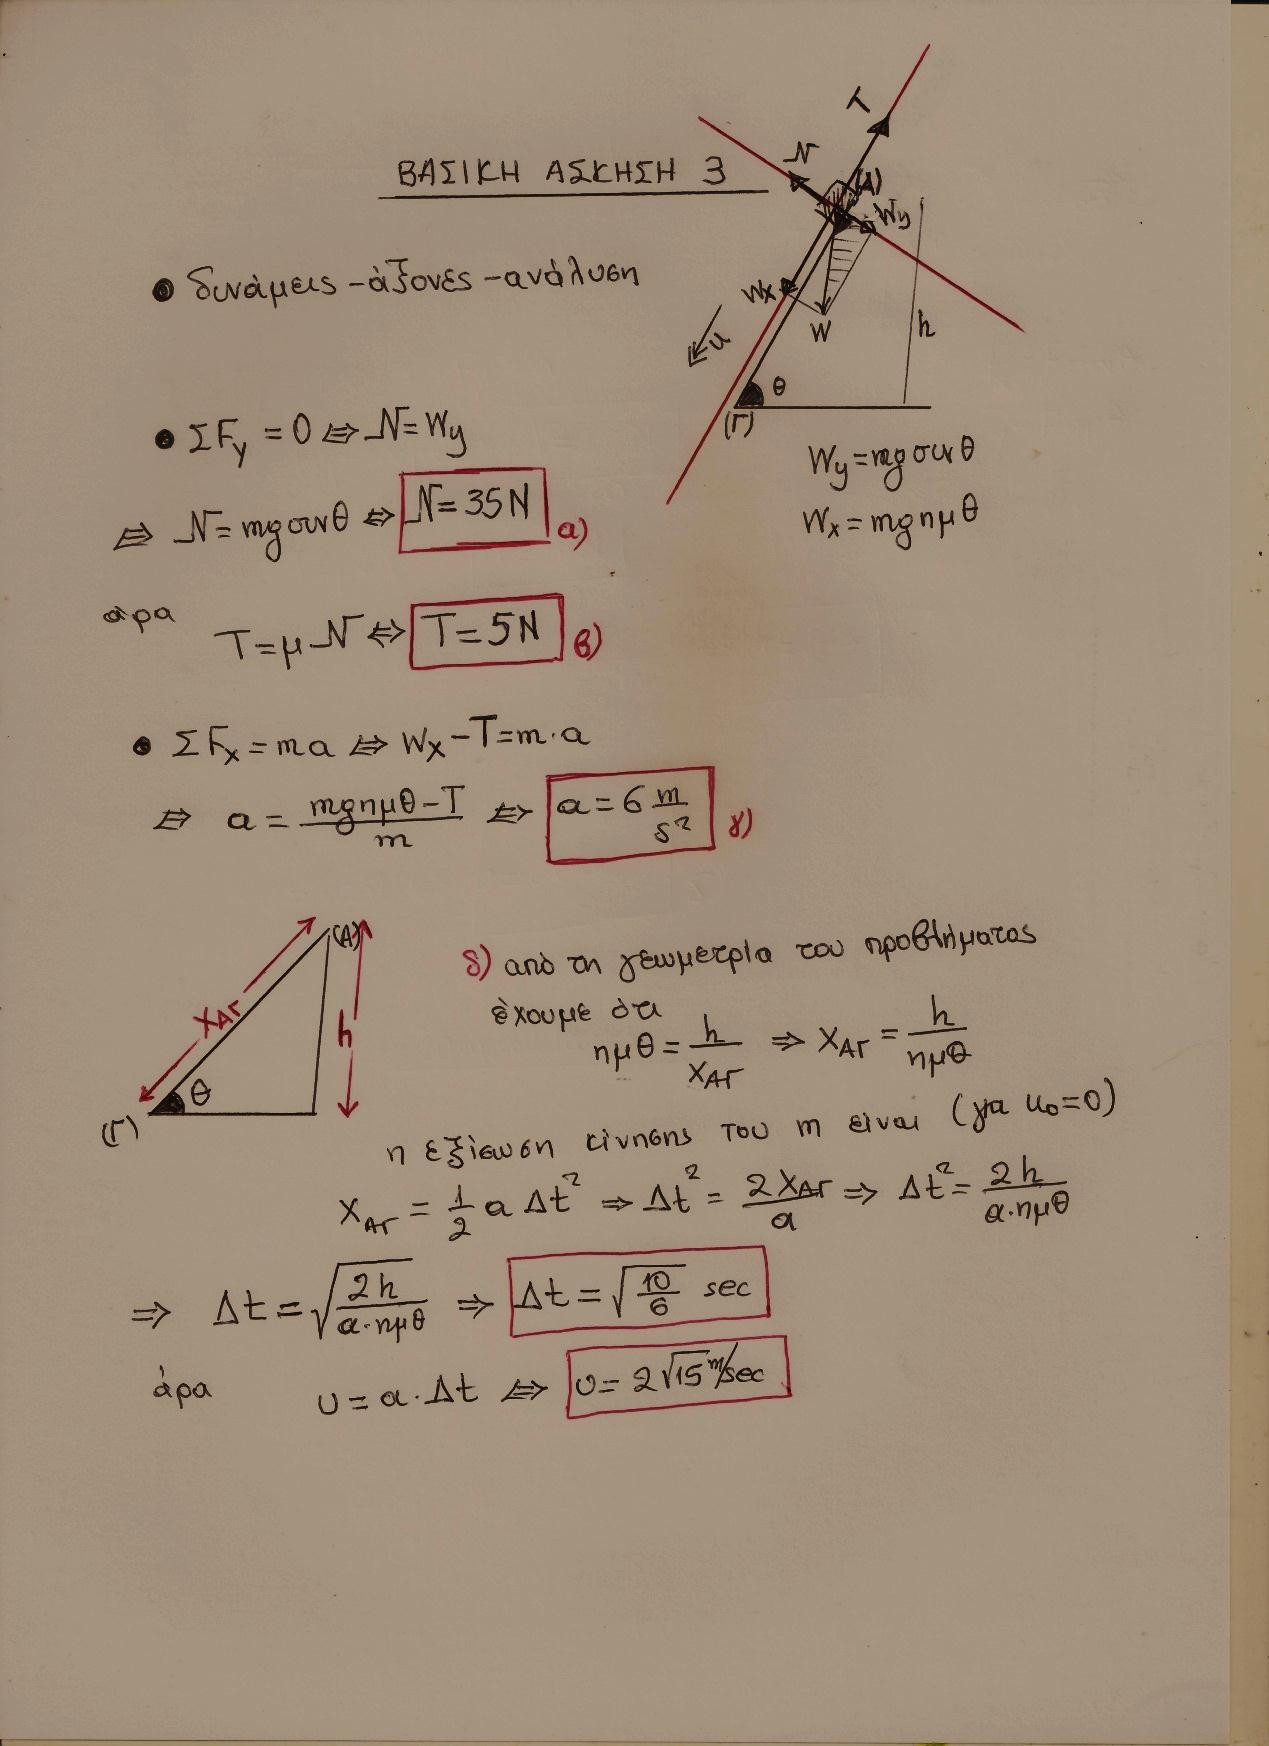 ΒΑΣΙΚΗ ΑΣΚΗΣΗ 3
T
N
(A)
Wy
Wx
W
u
h
θ
(Γ)
• δυνάμεις - άξονες - ανάλυση
• ΣFy = 0 ⇔ N = Wy
Wy = mg συνθ
⇔ N = mg συνθ ⇔ N = 35 N α)
Wx = mg ημθ
άρα T = μ N ⇔ T = 5 N β)
• ΣFx = m a ⇔ Wx - T = m · a
⇔ a = (mg ημθ - T)/m ⇔ a = 6 m/s² γ)
(A)
XΑΓ
h
θ
(Γ)
δ) από τη γεωμετρία του προβλήματος
έχουμε ότι
ημθ = h/XΑΓ ⇒ XΑΓ = h/ημθ
η εξίσωση κίνησης του m είναι (για u₀=0)
XΑΓ = 1/2 a Δt² ⇒ Δt² = 2XΑΓ/a ⇒ Δt² = 2h/(a·ημθ)
⇒ Δt = √(2h/(a·ημθ)) ⇒ Δt = √(10/6) sec
άρα υ = a · Δt ⇔ υ = 2√15 m/sec